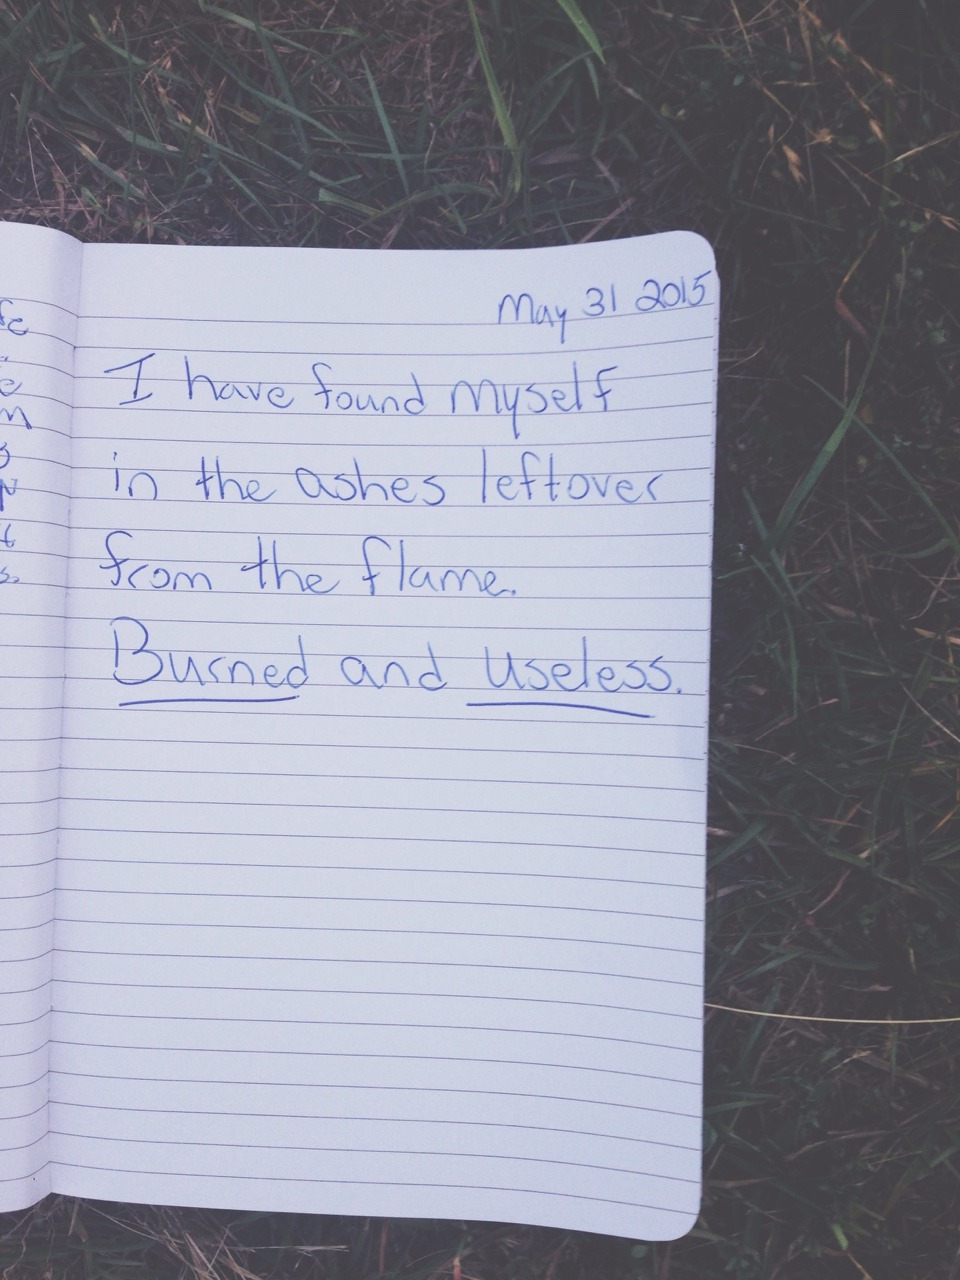 May 31 2015
I have found myself
in the ashes leftover
from the flame.
Burned and useless.